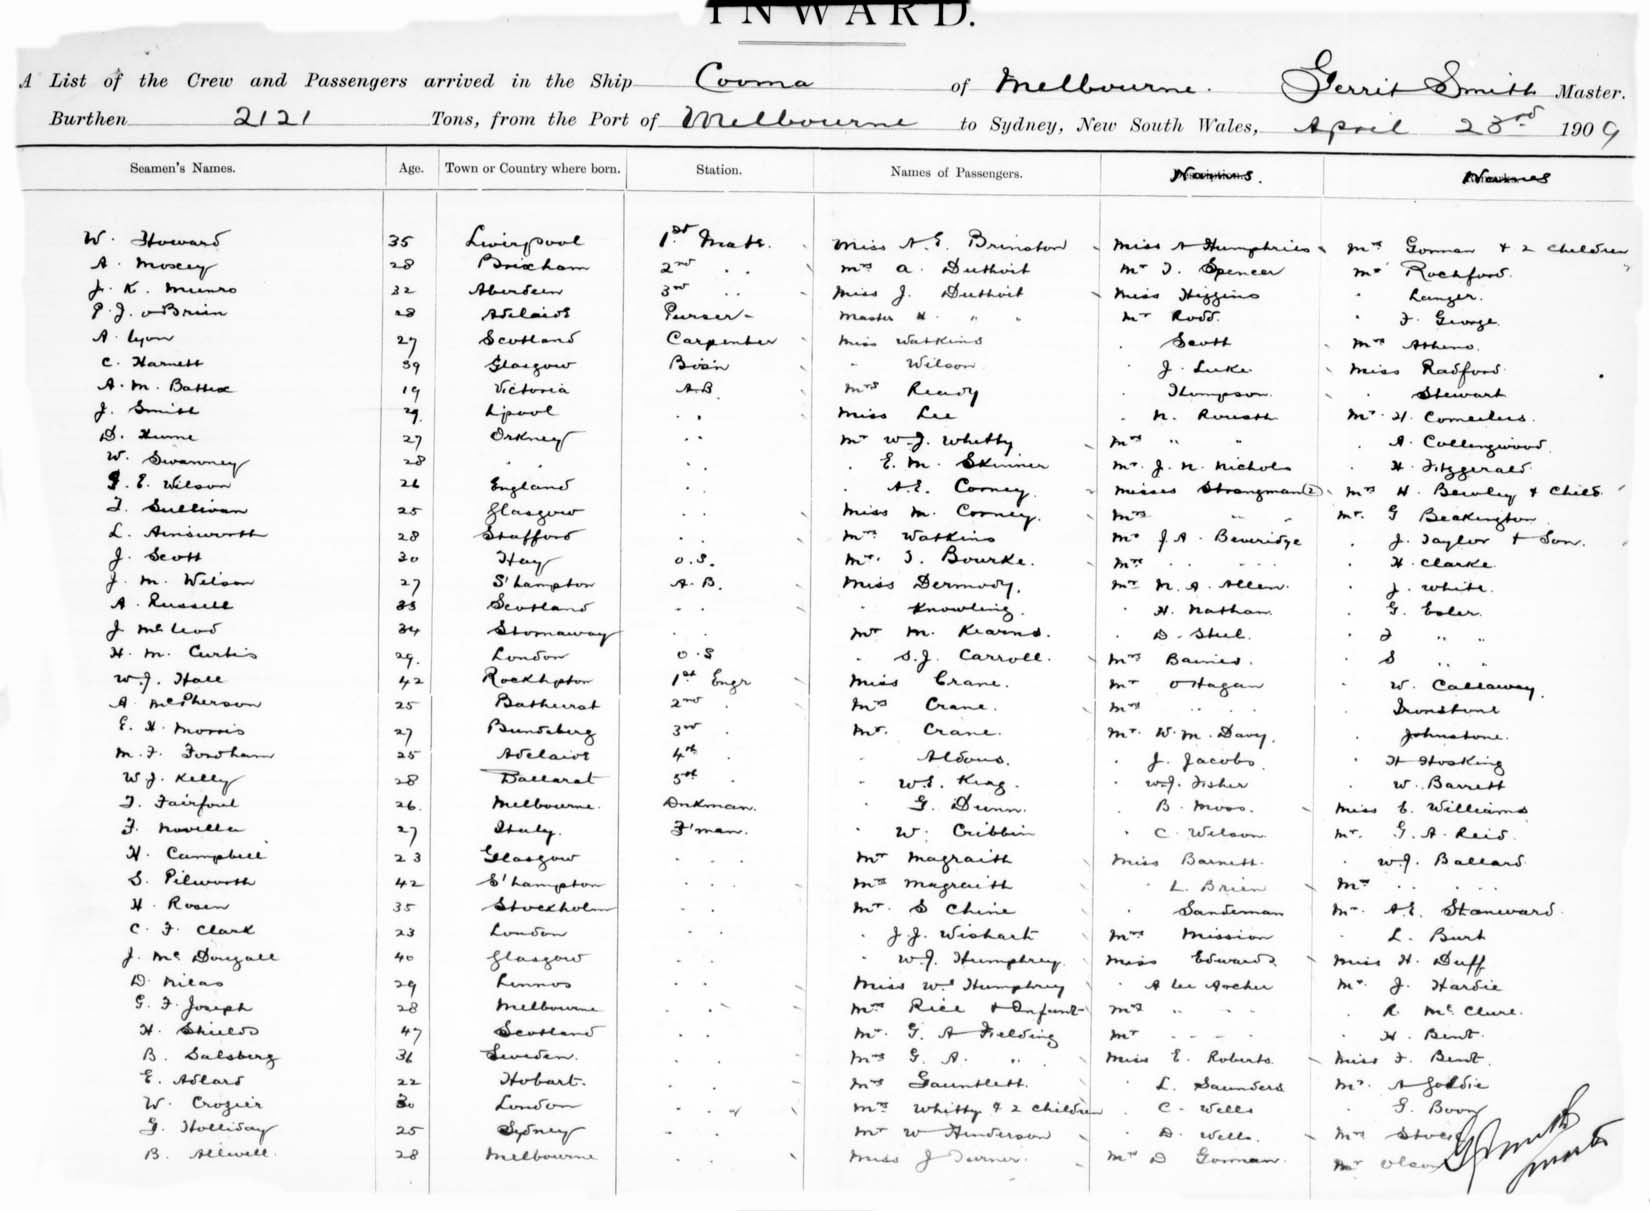 INWARD.
A List of the Crew and Passengers arrived in the Ship Cooma of Melbourne. Gerrit Smith Master.
Burthen 2121 Tons, from the Port of Melbourne to Sydney, New South Wales, April 23rd 1909
Seamen's Names. Age. Town or Country where born. Station. Names of Passengers. Names. Names
W. Howard 35 Liverpool 1st Mate. Miss A. E. Brinston Miss A Humphries Mrs Gorman & 2 Children
A. Moxey 28 Brixham 2nd . . Mrs A. Duthoit Mr T. Spencer Mr Rochford.
J. K. Munro 32 Aberdeen 3rd . . Miss J. Duthoit Miss Higgins . Langer.
P. J. O'Brien 28 Adelaide Purser Master H. " " Mr Rodd. . F. George.
A. Lyon 27 Scotland Carpenter Miss Watkins . Scott Mrs Athens.
C. Harnett 39 Glasgow Bos'n . Wilson . J. Luke Miss Radford.
A. M. Battex 19 Victoria A.B. Mrs Ready . Thompson. . Stewart
J. Smith 29. Lpool . . Miss Lee . N. Rousth Mr. H. Comelius.
D. Hume 27 Orkney . . Mr W. J. Whitty Mrs " " . A. Collingwood.
W. Swanney 28 . . . . . E. M. Skinner Mr. J. N. Nichols . H. Fitzgerald.
J. E. Wilson 26 England . . . A. E. Corney. Misses Strongman (2) Mrs H. Bewley & Child.
T. Sullivan 25 Glasgow . . Miss M. Corney. Mrs " " Mr. G Beckington.
L. Ainsworth 28 Stafford . . Mrs Watkins Mr J. A. Beveridge . J. Taylor & Son.
J. Scott 30 Hay O.S. Mr. T. Bourke. Mrs . . . . . H. Clarke.
J. M. Wilson 27 S'hampton A.B. Miss Dermody. Mr N. A. Allen. . J. White.
A. Russell 33 Scotland . . . Knowling. . H. Nathan. . G. Esler.
J. McLeod 34 Stornaway . . Mr M. Kearns. . D. Shiel. . J " "
H. M. Curtis 29. London O.S . S. J. Carroll. Mrs Baines. . S " "
W. J. Hall 42 Rockhpton 1st Engr Miss Crane. Mr O'Hagan . W. Callaway.
A. McPherson 25 Bathurst 2nd . Mrs Crane. Mrs . . . . . Ironstone
E. H. Morris 27 Bundaberg 3rd . Mr. Crane. Mr. W. M. Davy. . Johnstone.
M. F. Fordham 25 Adelaide 4th . . Aldous. . J. Jacobs. . H Hosking
W. J. Kelly 28 Ballarat 5th . . W. E. King. . W. J. Fisher . W. Barrett
T. Fairfoul 26. Melbourne. Dnkman. . G. Dunn. . B. Moss. Miss E. Williams
F. Novella 27 Italy. F'man. . W. Cribbin . C. Wilson Mr. G. A. Reid.
H. Campbell 23 Glasgow . . . Mr Magraith Miss Barnett. . W. J. Ballard
S. Pilworth 42 S'hampton . . . Mrs Magraith . L. Brien Mrs . . . . .
H. Rosen 35 Stockholm . . Mr. S Chine . Sandeman Mr. A. E. Stoneward.
C. F. Clark 23 London . . . J. J. Wishart Mrs Mission . L. Burt
J. McDougall 40 Glasgow . . . W. J. Humphrey. Miss Edwards. Miss H. Duff
D. Nilas 29 Lennos . . Miss W. Humphrey . A Lee Archer Mr. J. Hardie
G. F. Joseph 28 Melbourne . . Mrs Rice & Infant Mrs " . . . R. McClure.
H. Shields 47 Scotland . . Mr. G. A Fielding Mr . . . . . H. Bent.
B. Salsberg 36 Sweden. . . Mrs G. A. " Miss E. Roberts. Miss F. Bent.
E. Adlard 22 Hobart. . . Mrs Gauntlett. . L. Saunders Mr. A Goldie
W. Crozier 30 London . . Mrs Whitty & 2 Children . C. Wells . G. Boon
G. Holliday 25 Sydney . . Mr W Henderson . D. Wells. Mrs Stock
B. Allwell. 28 Melbourne . . Miss J Turner. Mrs D Gorman. Mr Olson
G Smith
Master